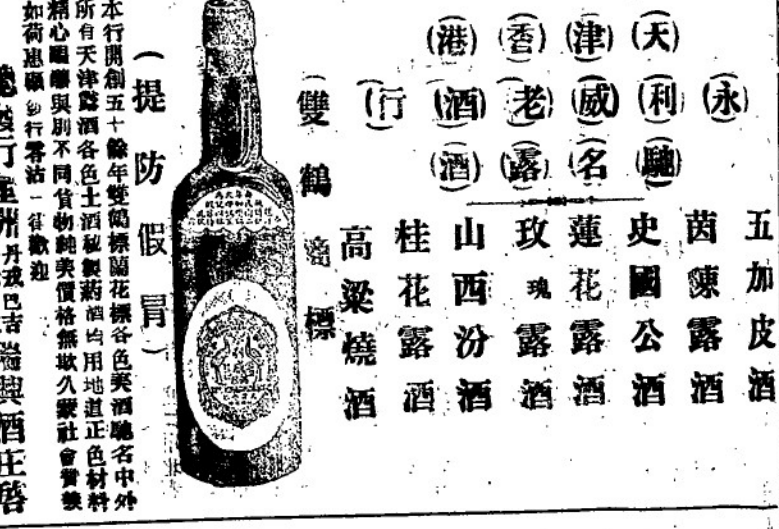 (天)(津)(香)(港)
(永)(利)(威)(老)(酒)(行)
(馳)(名)(露)(酒)
五加皮酒
茵陳露酒
史國公酒
蓮花露酒
玫瑰露酒
山西汾酒
桂花露酒
高粱燒酒
雙鶴商標
(提防假冒)
本行開創五十餘年雙鶴標蘭花標各色美酒馳名中外
所有天津露酒各色土酒秘製葯酒均用地道正色材料
精心釀與別不同貨物純美價格無欺久蒙社會賞
如荷惠顧行零沽一歡迎
行洲丹戎巴吉興酒庄啓